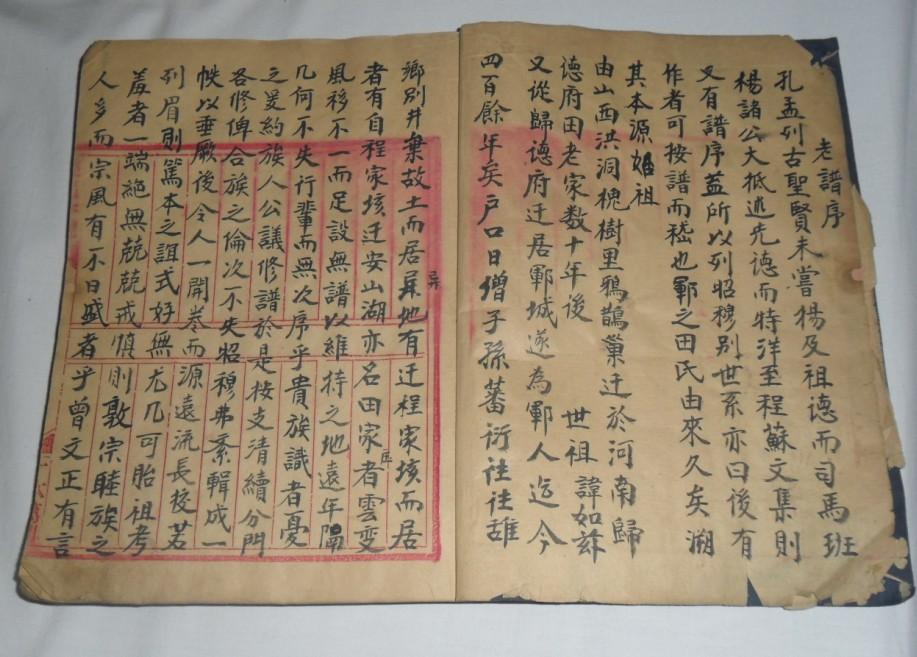 老譜序
孔孟列古聖賢未嘗揚及祖德而司馬班
楊諸公大抵述先德而特洋至程蘇文集則
又有譜序蓋所以列昭穆别世系亦曰後有
作者可按譜而嵇也鄆之田氏由來久矣溯
其本源始祖
由山西洪洞槐樹里鴉鵲巢迁於河南歸
德府田老家数十年後 世祖諱如茲
又從歸德府迁居鄆城遂為鄆人迄今
四百餘年矣户口日增子孫蕃衍往往離
鄉别井棄故土而居異地有迁程家垓而居
者有自程家垓迁安山湖亦名田家庄者雲变
風移不一而足設無譜以維持之地遠年隔
几何不失行輩而無次序乎貴族識者憂
之爰約族人公議修譜於是按支清續分門
各修俾合族之倫次不失昭穆弗紊輯成一
帙以垂厥後令人一開卷而源遠流長校若
列眉則篤本之誼式好無尤几可胎祖考
羞者一端絕無兢兢戒慎則敦宗睦族之
人多而宗風有不日盛者乎曾文正有言